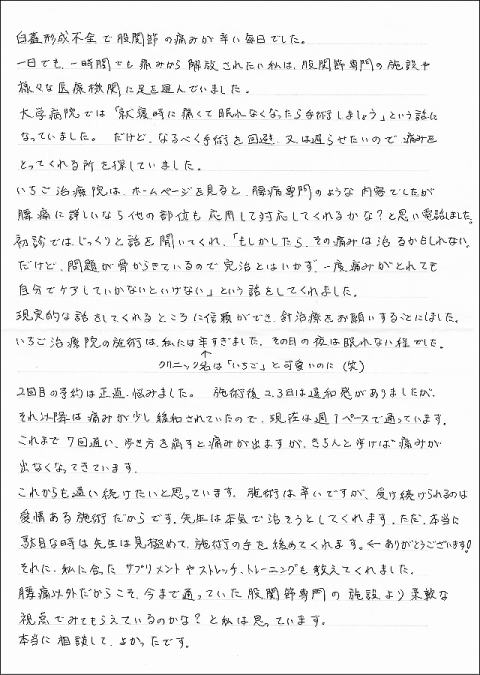 臼蓋形成不全で股関節の痛みが辛い毎日でした。
一日でも、一時間でも痛みから解放されたい私は、股関節専門の施設や
様々な医療機関に足を運んでいました。
大学病院では「就寝時に痛くて眠れなくなったら手術しましょう」という話に
なっていました。 だけど、なるべく手術を回避、又は遅らせたいので痛みを
とってくれる所を探していました。
いちご治療院は、ホームページを見ると、腰痛専門のような内容でしたが
腰痛に詳しいなら他の部位も応用して対応してくれるかな？と思い電話しました。
初診では、じっくりと話を聞いてくれ、「もしかしたら、その痛みは治るかもしれない。
だけど、問題が骨からきているので完治とはいかず、一度痛みがとれても
自分でケアしていかないといけない」という話をしてくれました。
現実的な話をしてくれるところに信頼ができ、針治療をお願いすることにしました。
いちご治療院の施術は、私には辛すぎました。その日の夜は眠れない程でした。
↑クリニック名は「いちご」と可愛いのに（笑）
2回目の予約は正直、悩みました。 施術後2、3日は違和感がありましたが、
それ以降は痛みが少し緩和されていたので、現在は週1ペースで通っています。
これまで7回通い、歩き方を崩すと痛みが出ますが、きちんと歩けば痛みが
出なくなってきています。
これからも通い続けたいと思っています。施術は辛いですが、受け続けられるのは
愛情ある施術だからです。先生は本気で治そうとしてくれます。ただ、本当に
駄目な時は先生は見極めて、施術の手を緩めてくれます。←ありがとうございます!
それに、私に合ったサプリメントやストレッチ、トレーニングも教えてくれました。
腰痛以外だからこそ、今まで通っていた股関節専門の施設より柔軟な
視点でみてもらえているのかな？と私は思っています。
本当に相談して、よかったです。